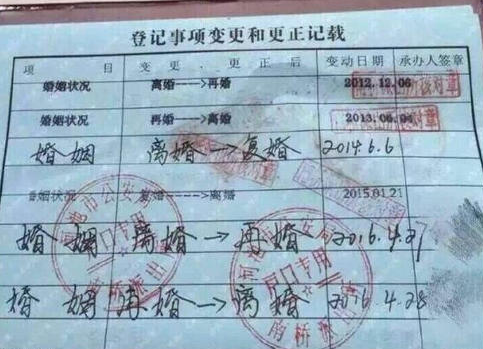 登记事项变更和更正记载
项 目 变 更 、 更 正 后 变动日期 承办人签章
婚姻状况 离婚---->再婚 2012.12.06
婚姻状况 再婚---->离婚 2013.06.04
婚姻 离婚→复婚 2014.6.6
婚姻状况 复婚---->离婚 2015.01.21
婚姻 离婚→再婚 2016.4.27
婚姻 再婚→离婚 2016.4.28
户口专用
户口专用
南桥派出